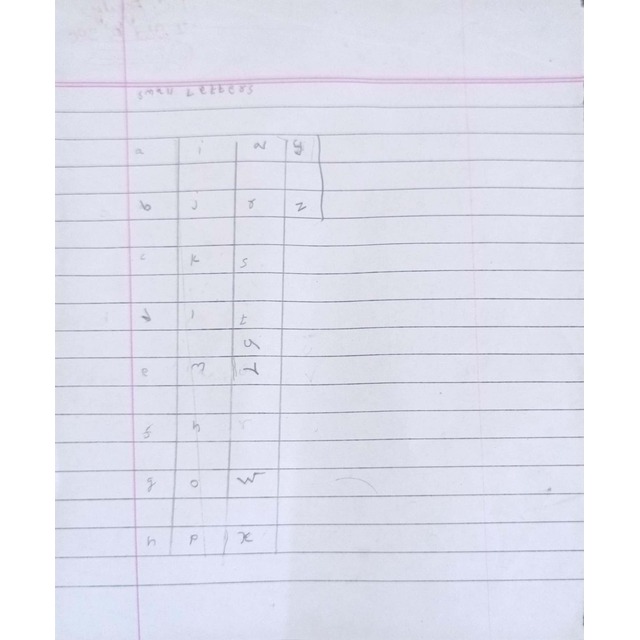 small letters
a i q y
b j r z
c k s
d l t
e m u
f n v
g o w
h p x